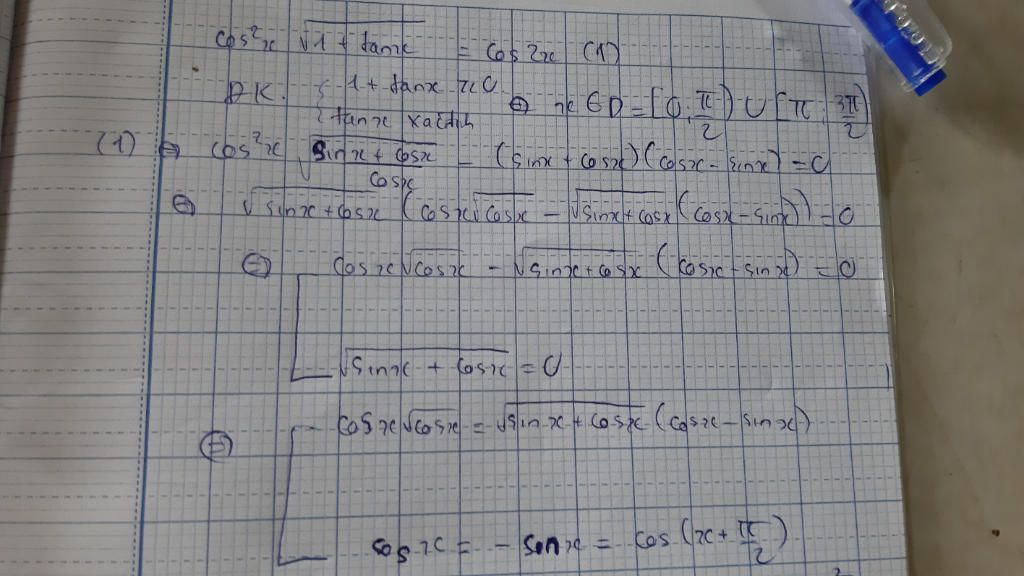 cos²x √(1 + tanx) = cos2x (1)
ĐK: { 1 + tanx ≥ 0
{ tanx xác định ⇔ x ∈ D = [0; π/2) ∪ [π; 3π/2)
(1) ⇔ cos²x √((sinx + cosx)/cosx) - (sinx + cosx)(cosx - sinx) = 0
⇔ √(sinx + cosx) (cosx√cosx - √(sinx + cosx) (cosx - sinx)) = 0
⇔ [ cosx√cosx - √(sinx + cosx) (cosx - sinx) = 0
√(sinx + cosx) = 0
⇔ [ cosx√cosx = √(sinx + cosx) (cosx - sinx)
cosx = - sinx = cos(x + π/2)